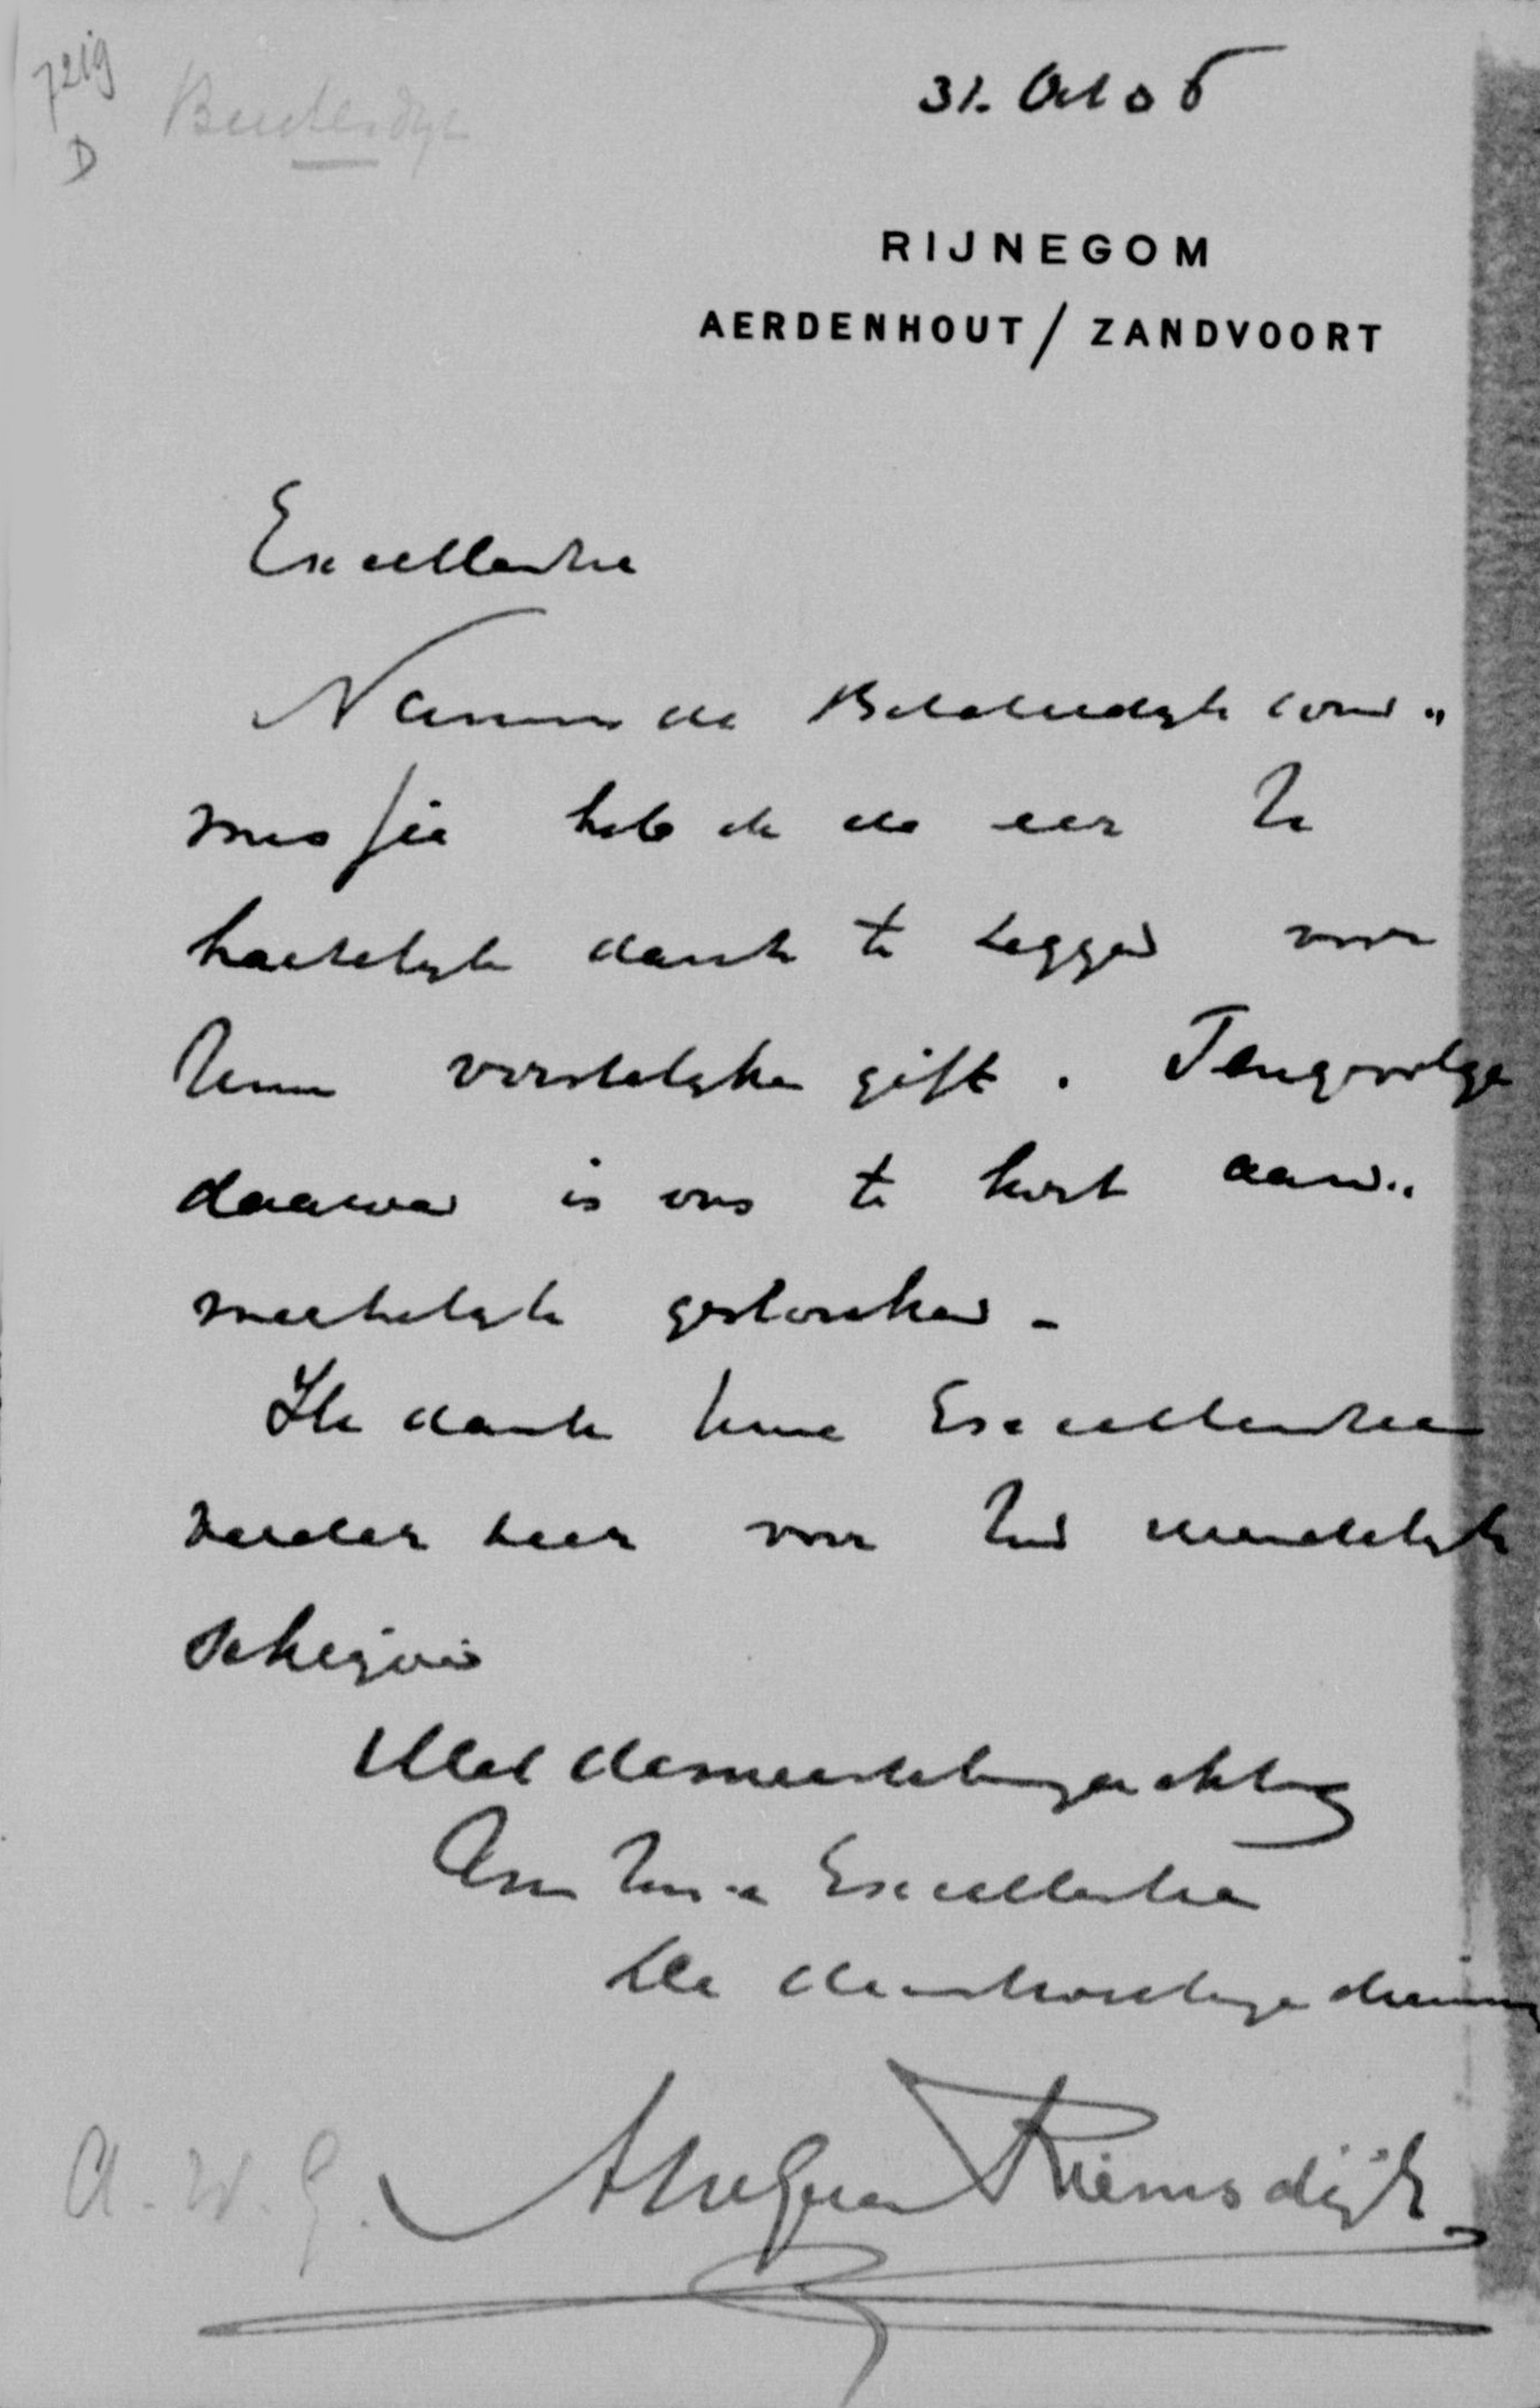 7219
D
31. Oct 06
RIJNEGOM
AERDENHOUT / ZANDVOORT
Excellentie
Namens de Bilderdijk com„
missie heb ik de eer U
hartelijk dank te zeggen voor
Uwe vorstelijke gift. Tengevolge
daarvan is ons te kort aan„
merkelijk geslonken.
Ik dank Uwe Excellentie
verder zeer voor Uw vriendelijk
schrijven
Met de meeste hoogachting
Van Uwe Excellentie
De dienstvaardige dienaar
A. W. G. van Riemsdijk